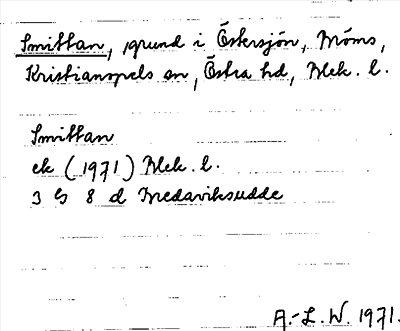 Smittan, grund i Östersjön, Möms,
Kristianopels sn, Östra hd, Blek. l.
Smittan
ek (1971) Blek. l.
3 G 8 d Bredaviksudde
A.-L. W. 1971.